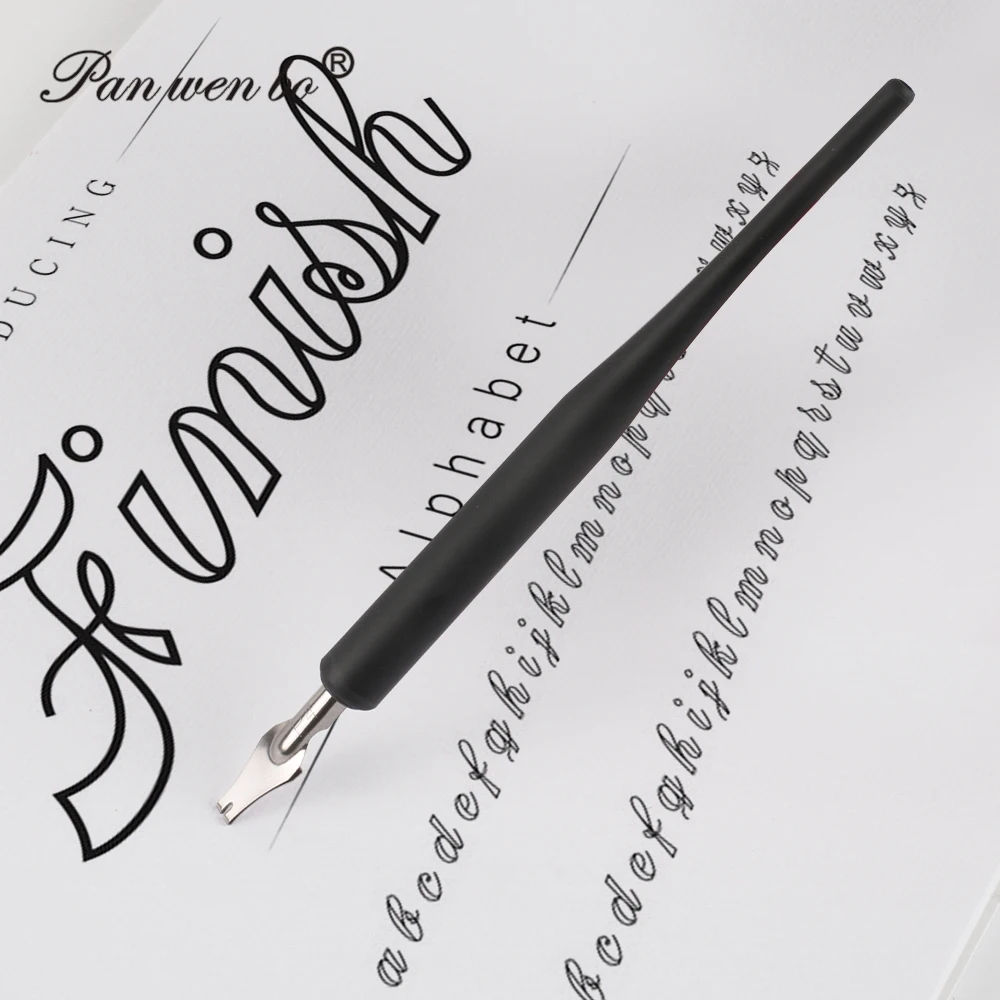 Pan wen bo®
DUCING
Finish
Alphabet
a b c d e f g h i j k l m n o p q w x y z
b c d e f g h i j k l m n o p q r s t u v w x y z